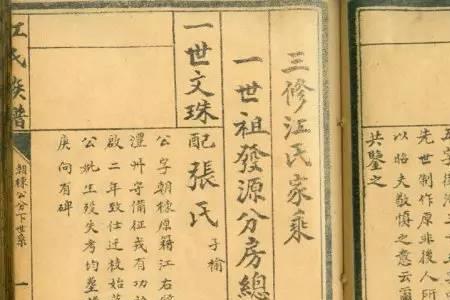 先世制作原非後人所
以昭夫敬慎之意云爾
共鑒之
三修江氏家乘
一世祖發源分房總
一世文珠配張氏子榆
公字朝棟原籍江右
澧州守備征我有功
啟二年致仕迁
公妣生歿失考均葬
庚向有碑
江氏族譜
朝棟公分下世系
一